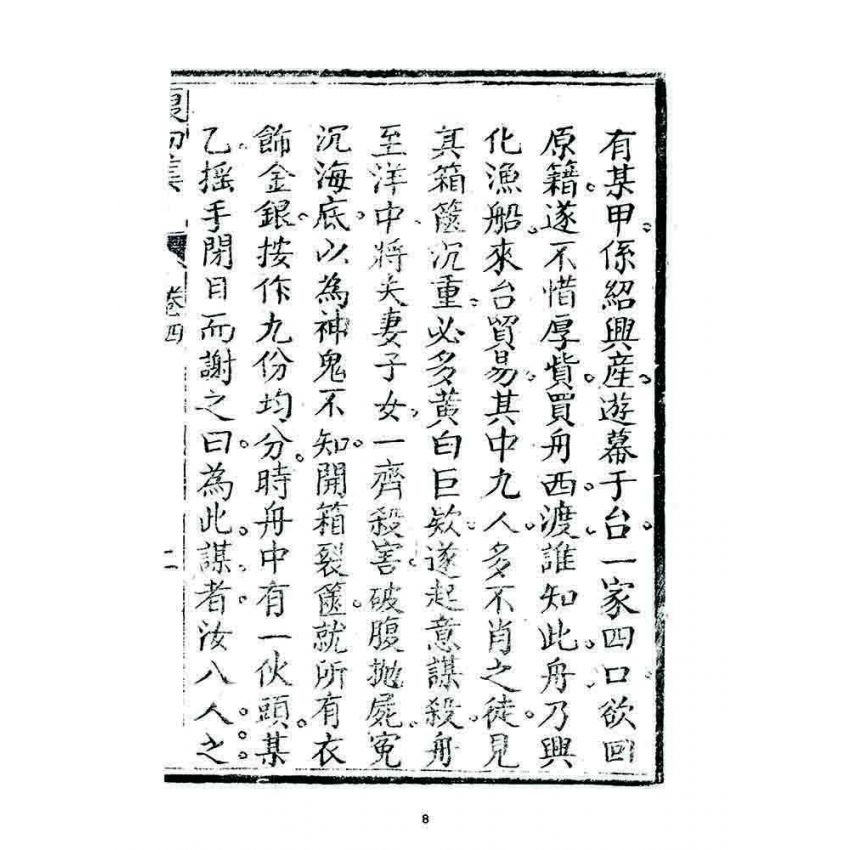 有某甲係紹興產遊幕于台一家四口欲回
原籍遂不惜厚貲買舟西渡誰知此舟乃興
化漁船來台貿易其中九人多不肖之徒見
其箱篋沉重必多黃白巨欵遂起意謀殺舟
至洋中將夫妻子女一齊殺害破腹拋屍冤
沉海底以為神鬼不知開箱裂篋就所有衣
飾金銀按作九份均分時舟中有一伙頭某
乙搖手閉目而謝之曰為此謀者汝八人之
卷四
二
8